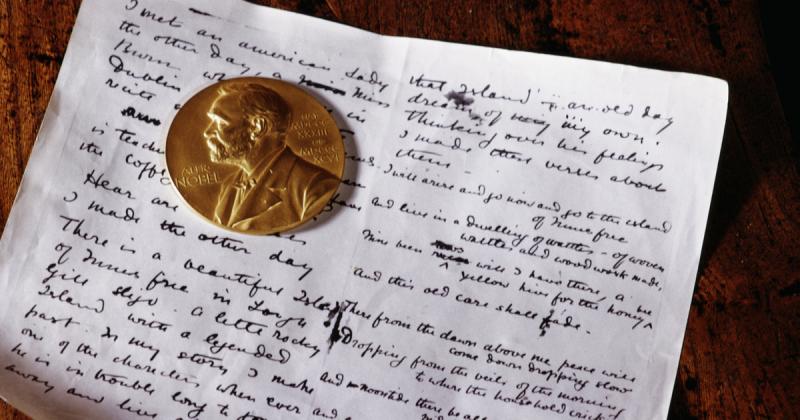 I met an american Lady
the other day, a Miss
Dublin who
is teach
the coff
Hear are
I made the other day
There is a beautiful Isla
of Innis free in Lough
Gill Sligo. a little rocky
Island with a legended
past. In my story I make
one of the characters when ever
he is in trouble long to
away and live
ALFR.
NOBEL
NAT.
MDCCC
XXXIII
OB.
that Island – an old day
dream of my own.
Thinking over his feelings
I made these verses about
them –
I will arise and go now and go to the island
of Innis free
and live in a dwelling of wattles – of woven
wattles and wood work made,
Nine bean will I have there, a
yellow hive for the honey
And this old care shall fade.
There from the dawn above me peace will
come down dropping slow
Dropping from the veils of the morning
to where the household cricket
and noontide there be all